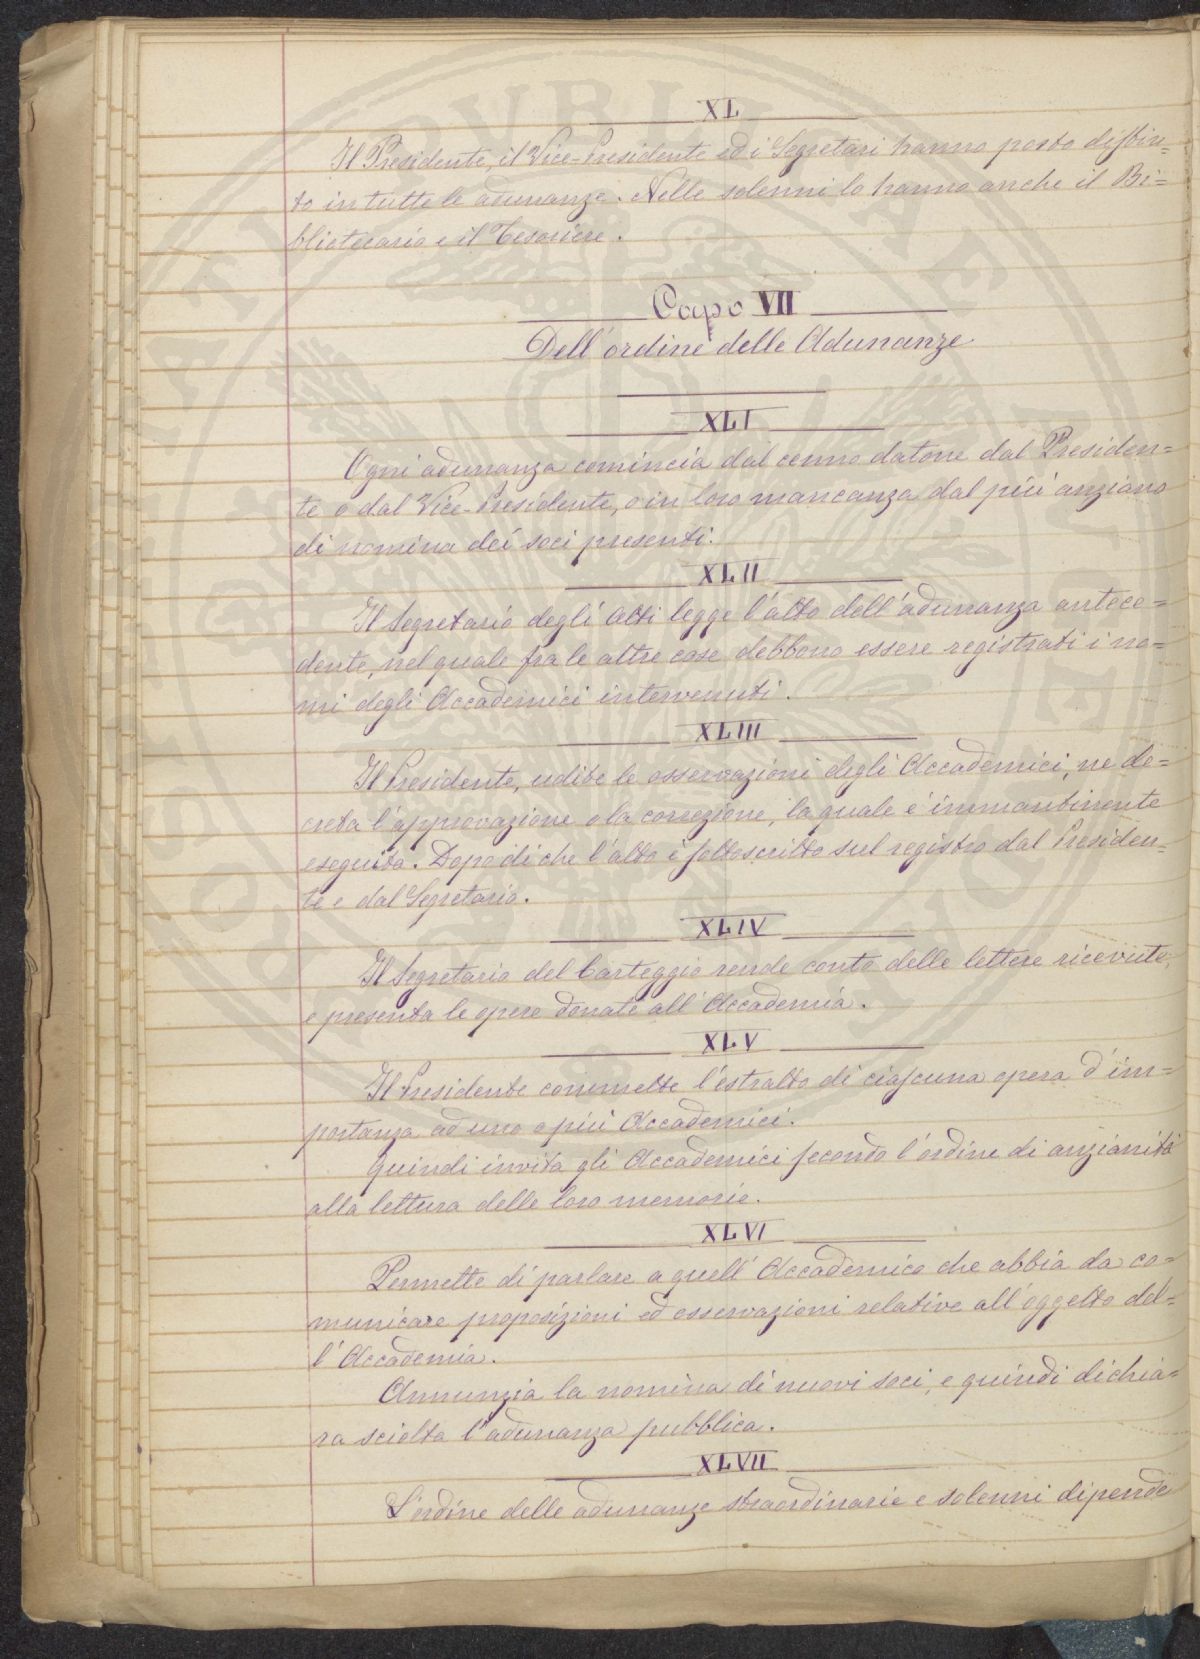 XL
Il Presidente, il Vice-Presidente ed i Segretari hanno posto distin=
to in tutte le adunanze. Nelle solenni lo hanno anche il Bi=
bliotecario e il Tesoriere.
Capo VII
Dell'ordine delle Adunanze
XLI
Ogni adunanza comincia dal cenno datone dal Presiden=
te o dal Vice-Presidente, o in loro mancanza dal più anziano
di nomina dei soci presenti.
XLII
Il Segretario degli Atti legge l'atto dell'adunanza antece=
dente, nel quale fra le altre cose debbono essere registrati i no=
mi degli Accademici intervenuti.
XLIII
Il Presidente, udite le osservazioni degli Accademici, ne de=
creta l'approvazione o la correzione, la quale è immantinente
eseguita. Dopo di che l'atto è sottoscritto sul registro dal Presiden=
te e dal Segretario.
XLIV
Il Segretario del Carteggio rende conto delle lettere ricevute,
e presenta le opere donate all'Accademia.
XLV
Il Presidente commette l'estratto di ciascuna opera d'im=
portanza ad uno o più Accademici.
Quindi invita gli Accademici secondo l'ordine di anzianità
alla lettura delle loro memorie.
XLVI
Permette di parlare a quell'Accademico che abbia da co=
municare proposizioni ed osservazioni relative all'oggetto del=
l'Accademia.
Annunzia la nomina di nuovi soci, e quindi dichia=
ra sciolta l'adunanza pubblica.
XLVII
L'ordine delle adunanze straordinarie e solenni dipende